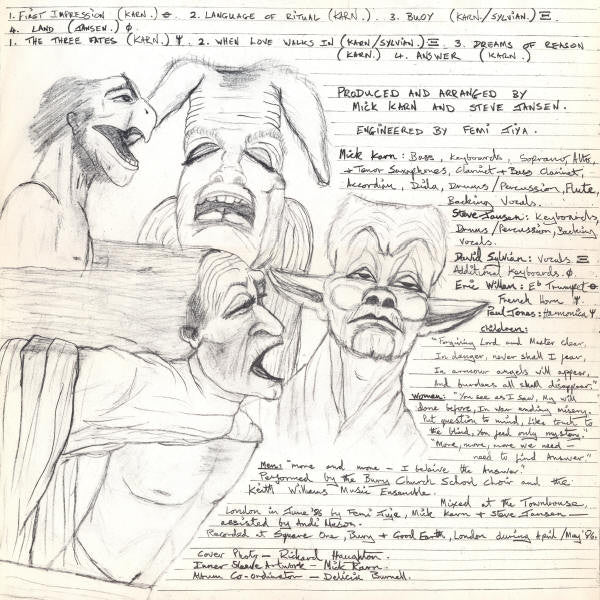 1. FIRST IMPRESSION (KARN.) ⦵. 2. LANGUAGE OF RITUAL (KARN.). 3. BUOY (KARN./SYLVIAN.) Ξ
4. LAND (JANSEN.) ∅
1. THE THREE FATES (KARN.) Ψ. 2. WHEN LOVE WALKS IN (KARN/SYLVIAN.) Ξ. 3. DREAMS OF REASON
(KARN.) 4. ANSWER (KARN.)
PRODUCED AND ARRANGED BY
MICK KARN AND STEVE JANSEN.
ENGINEERED BY FEMI JIYA.
Mick Karn: Bass, Keyboards, Soprano, Alto,
+ Tenor Saxophones, Clarinet + Bass Clarinet,
Accordian, Dida, Drums/Percussion, Flute,
Backing Vocals.
Steve Jansen: Keyboards,
Drums/Percussion, Backing
Vocals.
David Sylvian: Vocals Ξ
Additional Keyboards. ∅
Eric Willen: Eb Trumpet ⦵
French Horn Ψ
Paul Jones: Harmonica Ψ
Children:
"Forgiving Lord and Master clear,
In danger, never shall I fear,
In armour angels will appear,
And burdens all shall disappear."
Women: "You see as I saw, My will
done before, In war ending misery.
Put question to mind, like touch to
the blind, You feed only mystery."
"More, more, more we need —
need to find Answer."
Men: "more and more — I believe the Answer."
Performed by the Bury Church School Choir and the
Keith Williams Music Ensemble.
Mixed at the Townhouse,
London in June '86 by Femi Jiya, Mick Karn + Steve Jansen —
assisted by Andi Mason.
Recorded at Square One, Bury + Good Earth, London during April/May '86.
Cover Photo — Richard Haughton.
Inner Sleeve Artwork — Mick Karn.
Album Co-ordinator — Delicia Burnell.